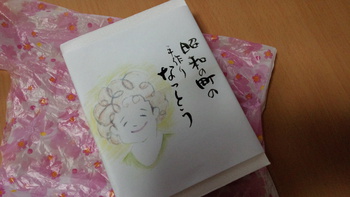 昭和の町の
手作り
なっとう